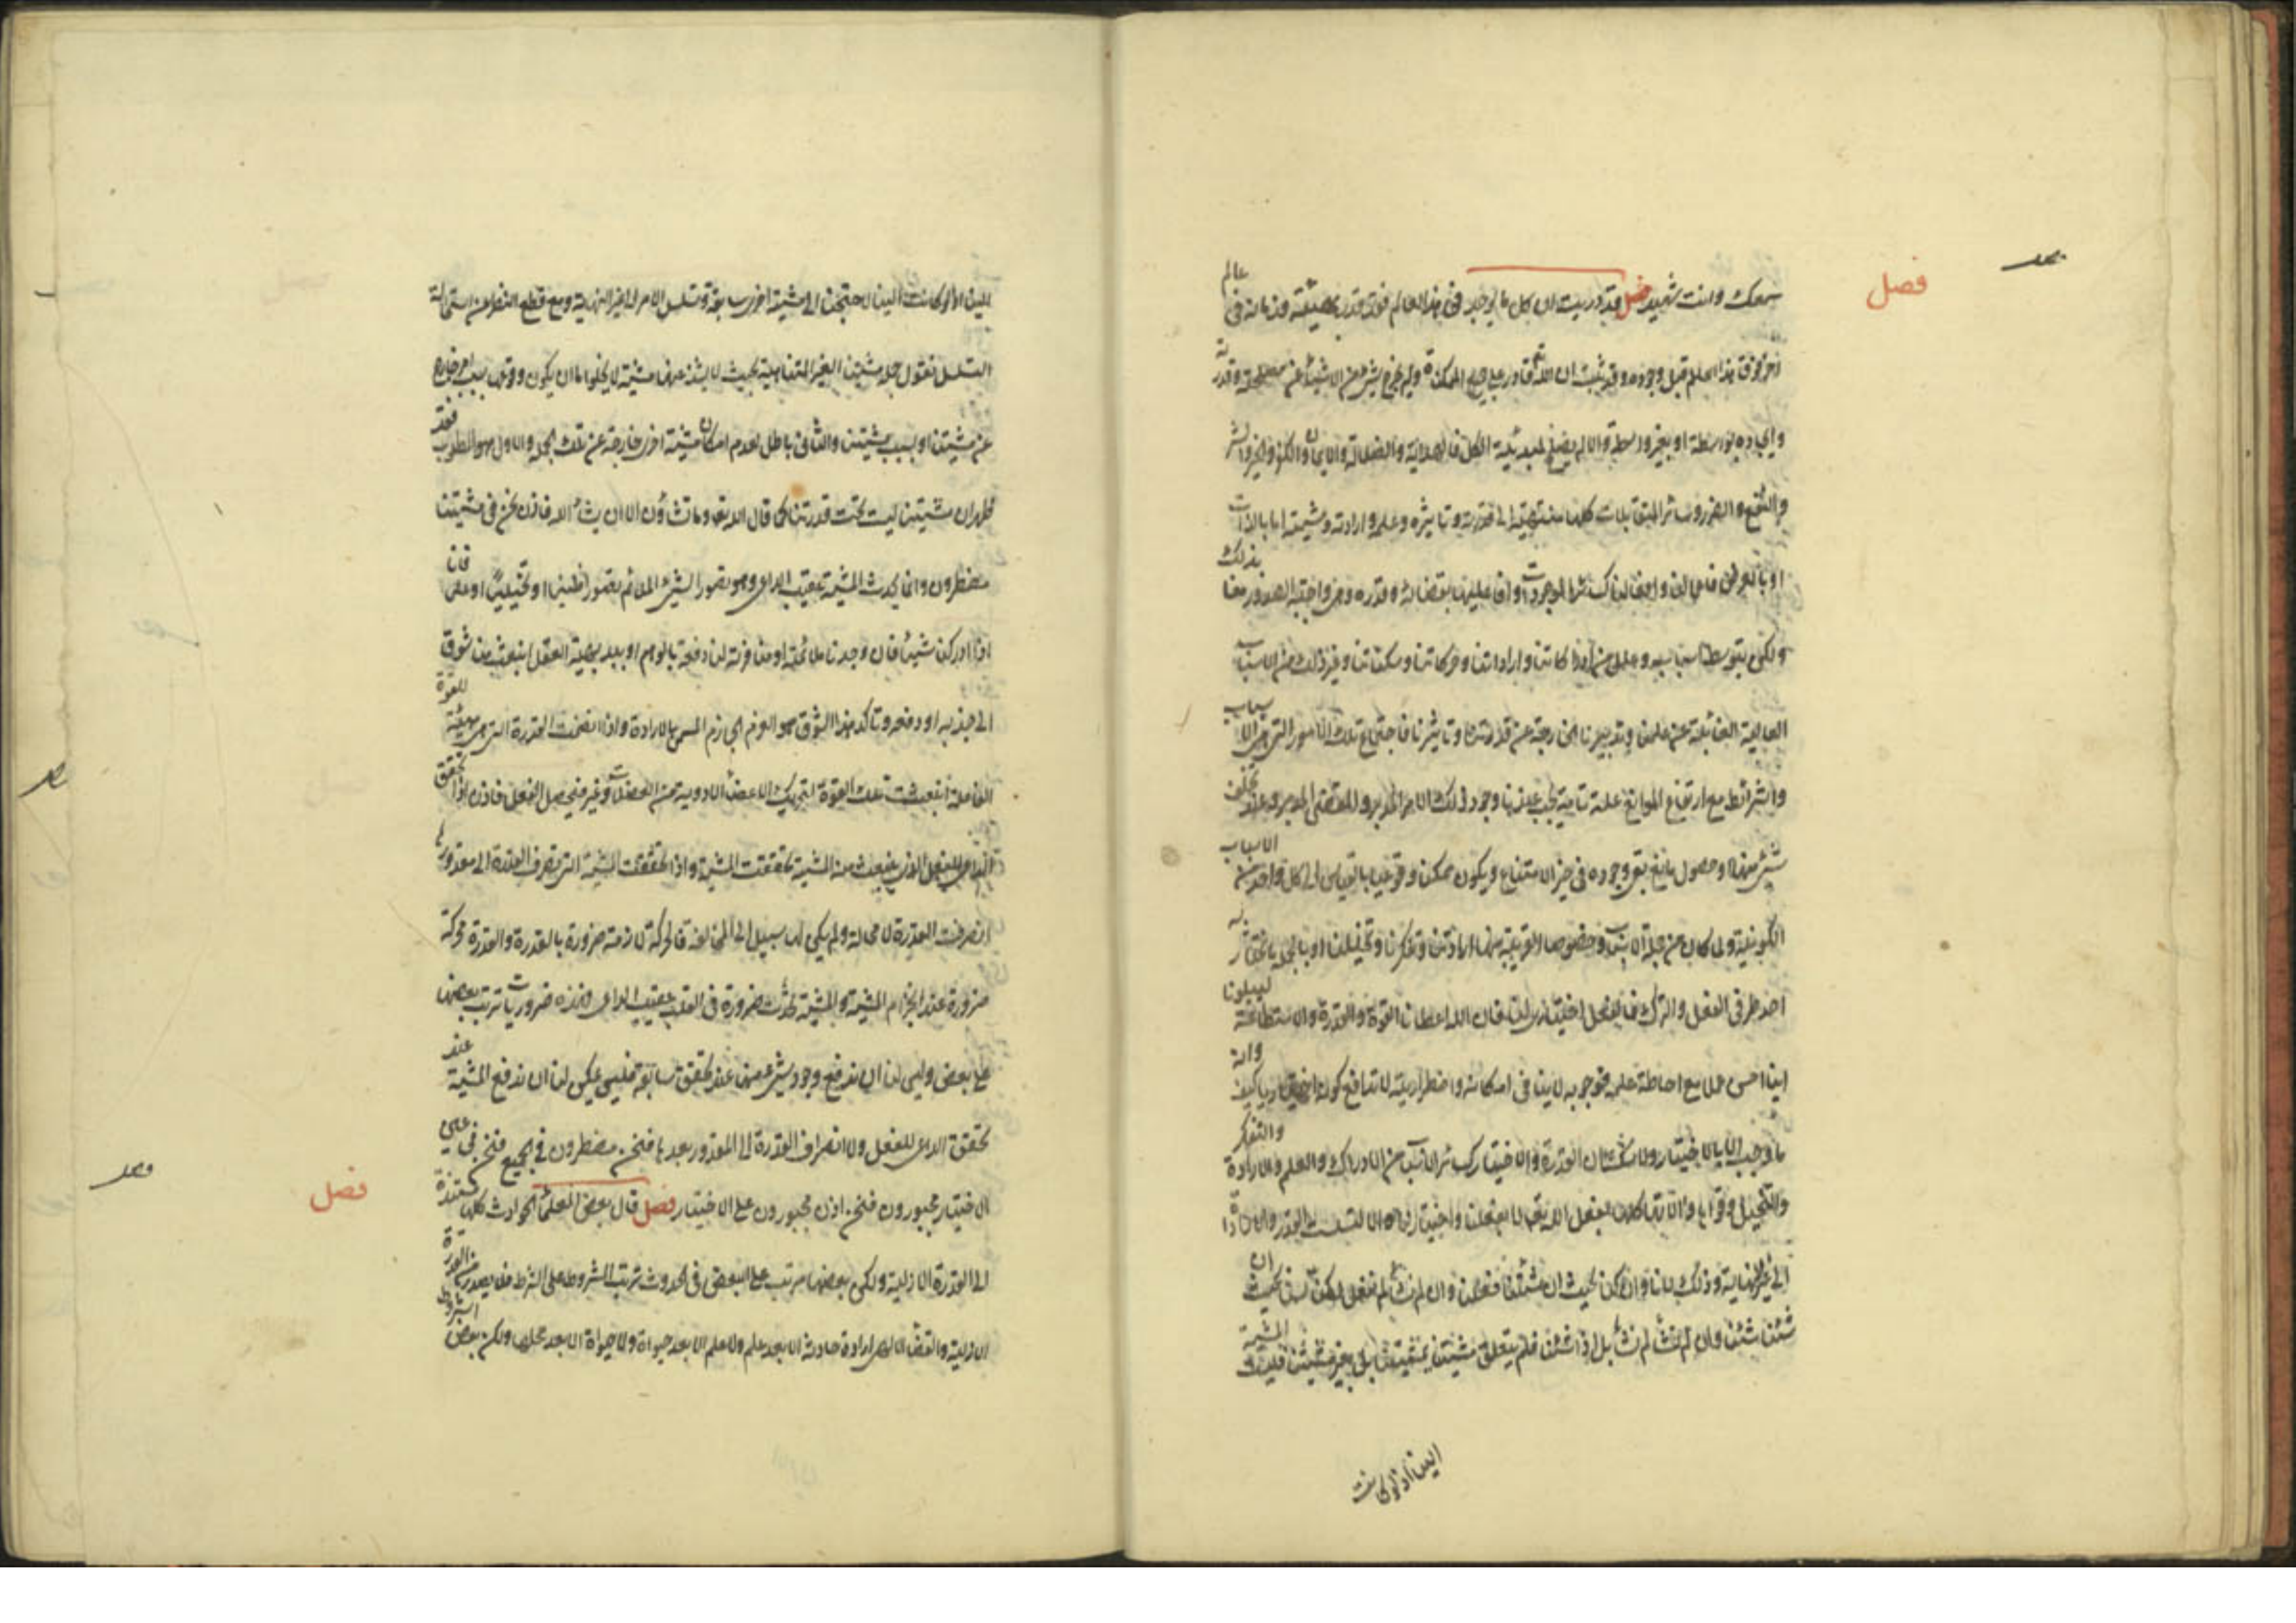 فصل
سمعك وانت شهيد فصل قد دريت ان كل ما يوجد في هذا العالم فقد قدر بهيئته وزمانه في عالم
اخر فوق هذا العالم قبل وجوده وقد ثبت ان الله قادر على جميع الممكنات ولم يخرج شيء من الاشياء عن مصلحته وقدرته
وايجاده بواسطة او بغير واسطة والا لم يصلح لمبدئية الكل فالهداية والضلالة والايمان والكفر والخير والشر
والنفع والضرر وسائر المتقابلات كلها منتهية الى قدرته وتاثيره وعلمه وارادته ومشيته اما بالذات
او بالعرض فاعمالنا وافعالنا كسائر الموجودات وافاعيلها بقضائه وقدره وهي واجبة الصدور منا بذلك
ولكن بتوسط اسباب وعلل من ادراكاتنا واراداتنا وحركاتنا وسكناتنا وغير ذلك من الاسباب
العالية الغائبة عن علمنا وتدبيرنا الخارجة عن قدرتنا وتاثيرنا فاجتماع تلك الامور التي هي الاسباب
والشرائط مع ارتفاع الموانع علة تامة يجب عندها وجود ذلك الامر المدبر والمقضي المقدر وعند تخلف
شيء منها او حصول مانع بقي وجوده في حيز الامتناع ويكون ممكنا وقوعيا بالقياس الى كل واحد من الاسباب
الكونية ولما كان من جملة الاسباب وخصوصا القريبة منها ارادتنا وتفكرنا وتخيلنا وبالجملة ما نختار به
احد طرفي الفعل والترك فالفعل اختياري لنا فان الله اعطانا القوة والقدرة والاستطاعة ليبلونا
اينا احسن عملا مع احاطة علمه فوجوبه لا ينافي امكانه واضطراريته لا تدافع كونه اختياريا كيف وانه
ما وجب الا بالاختيار ولا شك ان القدرة والاختيار كسائر الاسباب من الادراك والعلم والارادة والتفكر
والتخيل وقواها والاتها كلها بفعل الله تعالى لا بفعلنا واختيارنا والا لتسلسلت القدر والارادات
الى غير النهاية وذلك لانا وان كنا بحيث ان شئنا فعلنا وان لم نشأ لم نفعل لكنا لسنا بحيث ان
شئنا شئنا وان لم نشأ لم نشأ بل اذا شئنا فلم يتعلق مشيتنا بمشيتنا بل بغير مشيتنا فليست المشية
الينا اذ لو كانت
الينا اذ لو كانت الينا لاحتجنا الى مشية اخرى سابقة وتسلسل الامر الى غير النهاية ومع قطع النظر عن استحالة
التسلسل نقول جملة مشيتنا الغير المتناهية بحيث لا يشذ عنها مشية لا يخلو اما ان يكون وقوعها بسبب امر خارج
عن مشيتنا او بسبب مشيتنا والثاني باطل لعدم امكان مشية اخرى خارجة عن تلك الجملة والاول هو المطلوب فقد
ظهر ان مشيتنا ليست تحت قدرتنا كما قال الله تعالى وما تشاؤن الا ان يشاء الله فاذن نحن في مشيتنا
مضطرون وانما يحدث المشية عقيب الداعي وهو تصور الشيء الملائم تصورا ظنيا او تخيليا او علميا فانا
اذا ادركنا شيئا فان وجدنا ملائمته او منافرته لنا دفعة بالوهم او ببديهة العقل انبعث منا شوق
الى جذبه او دفعه وتاكد هذا الشوق هو العزم الجازم المسمى بالارادة واذا انضمت القدرة التي هي هيئة للقوة
الفاعلة انبعثت تلك القوة لتحريك الاعضاء الادوية من العضلات وغيرها فيحصل الفعل فاذن اذا تحقق
الداعي للفعل الذي ينبعث منه المشية تحققت المشية واذا تحققت المشية التي تصرف القدرة الى مقدورها
انصرفت القدرة لا محالة ولم يكن لها سبيل الى المخالفة فالحركة لازمة ضرورة بالقدرة والقدرة محركة
ضرورة عند انجزام المشية والمشية تحدث ضرورة في القلب عقيب الداعي فهذه ضروريات ترتب بعضها
على بعض وليس لنا ان ندفع وجود شيء منها عند تحقق سابقه فليس يمكن لنا ان ندفع المشية عند
تحقق الداعي للفعل ولا انصراف القدرة الى المقدور بعدها فنحن مضطرون في الجميع فنحن في عين
الاختيار مجبورون فنحن اذن مجبورون على الاختيار فصل قال بعض العلماء الحوادث كلها مستندة
الى القدرة الازلية ولكن بعضها مرتب على البعض في الحدوث ترتب المشروط على الشرط فلا يصدر من القدرة
الازلية والقضاء الالهي ارادة حادثة الا بعد علم ولا علم الا بعد حيوة ولا حيوة الا بعد محلها ولكن بعض الشروط
فصل